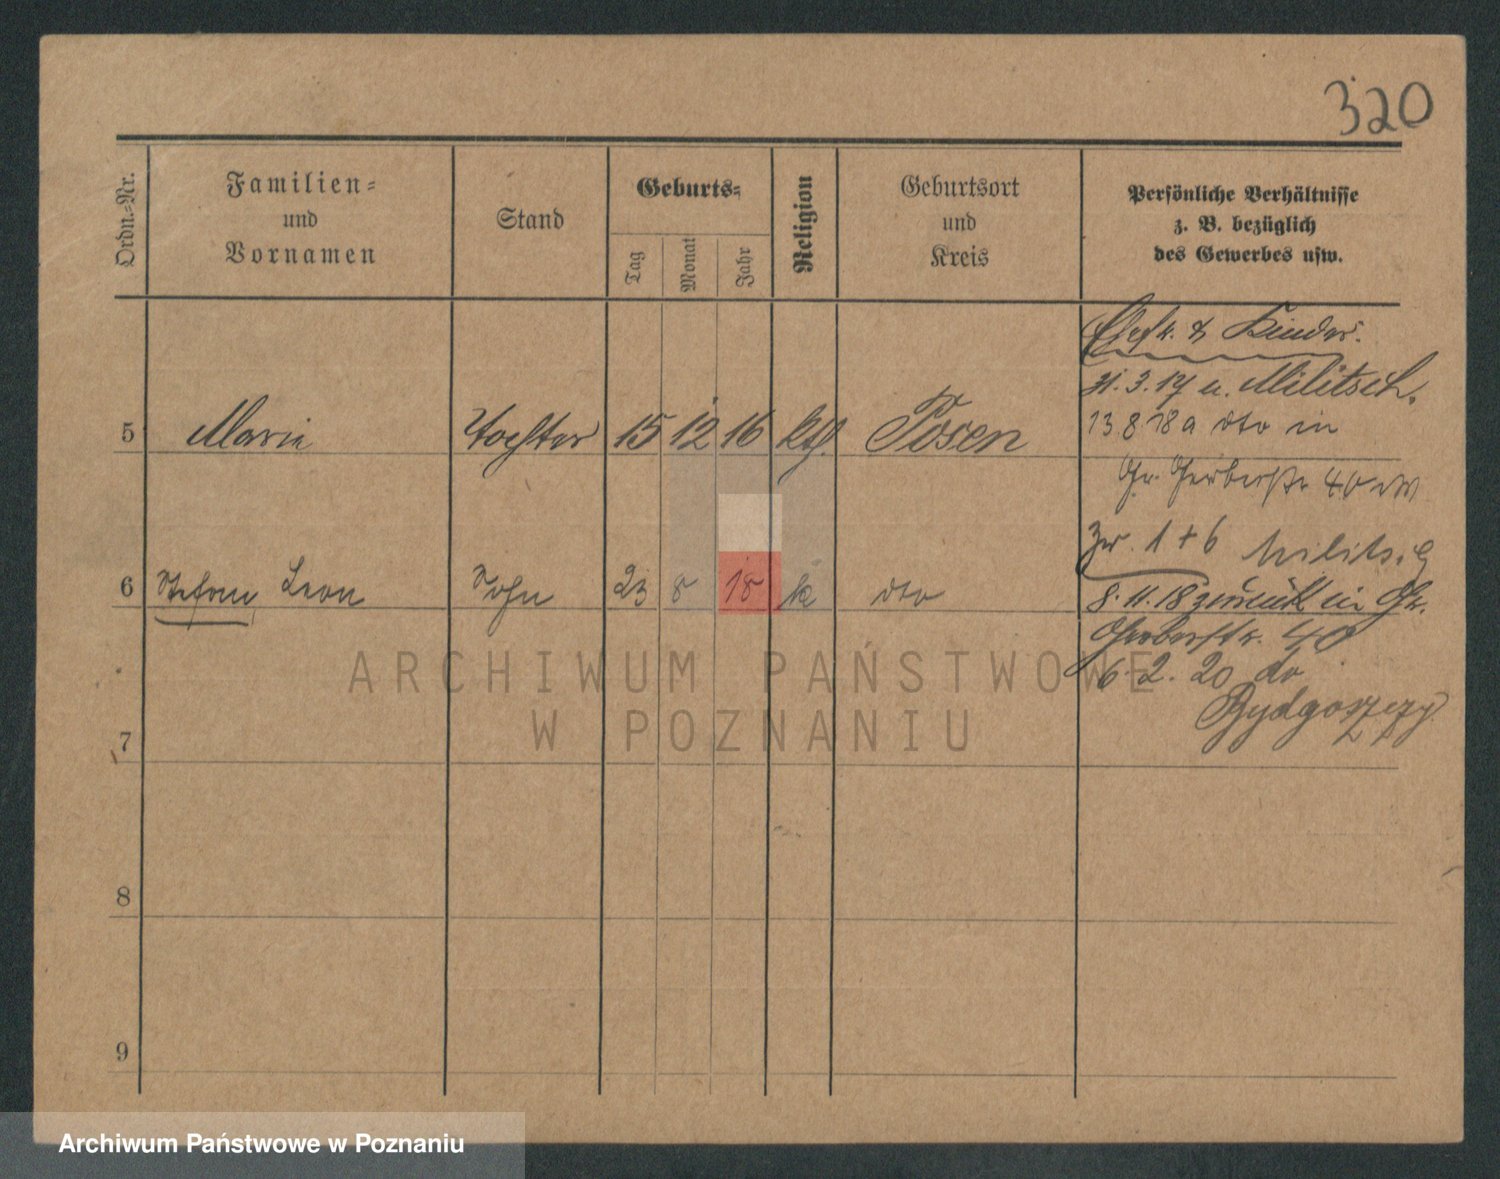 320
Ordn.-Nr.
Familien-
und
Vornamen
Stand
Geburts-
Tag
Monat
Jahr
Religion
Geburtsort
und
Kreis
Persönliche Verhältnisse
z. B. bezüglich
des Gewerbes usw.
Ehefr. & Kinder.
31.3.17 n. Militsch.
5 Marie Tochter 15 12 16 kth. Posen
13.8.18 a dto in
Gr. Gerberstr 40
1 + 6 Militsch
6 Stefan, Leon Sohn 23 8 18 k dto
8.11.18 zurück in Gr.
Gerberstr. 40
6.2.20 do
Bydgoszczy
7
8
9
ARCHIWUM PAŃSTWOWE
W POZNANIU
Archiwum Państwowe w Poznaniu